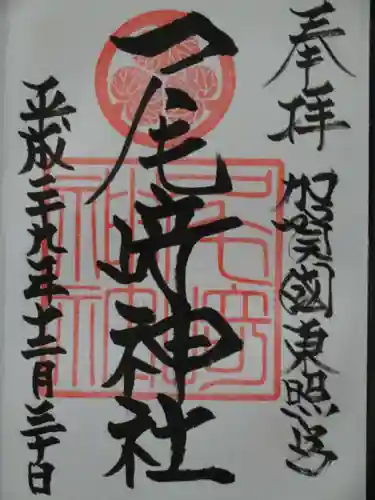 奉拝
加賀國東照宮
尾﨑神社
平成二十九年十二月三十日
尾﨑神社